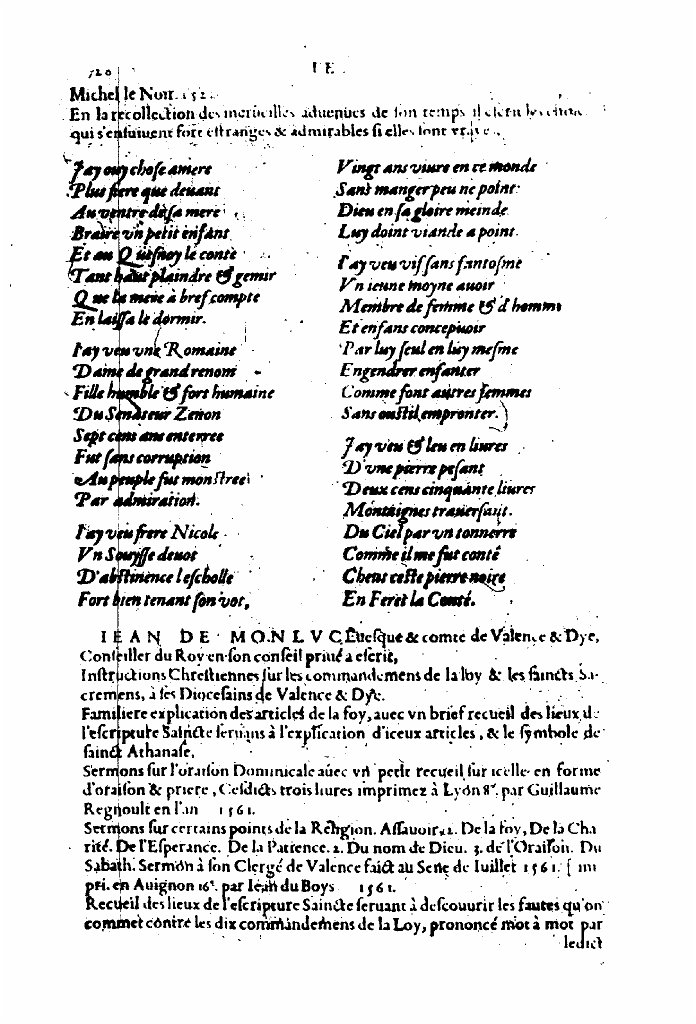 720
IE
Michel le Noir. 152
En la recollection des merueilles aduenues de son temps il
qui s'ensuiuent fort estranges & admirables si elles sont
J'ay ouy chose amere
Plus fiere que deuant
Au ventre de sa mere
Braire vn petit enfant
Et au Quesnoy le conte
Tant haut plaindre & gemir
Que la mere à bref compte
En laissa le dormir.
I'ay veu vne Romaine
Dame de grand renom
Fille humble & fort humaine
Du Senateur Zenon
Sept cens ans enterree
Fut sans corruption
Au peuple fut monstree
Par admiration.
I'ay veu frere Nicole
Vn Souysse deuot
D'abstinence l'escholle
Fort bien tenant son vot,
Vingt ans viure en ce monde
Sans manger peu ne point
Dieu en sa gloire meinde
Luy doint viande a point.
I'ay veu vif sans fantosme
Vn ieune moyne auoir
Membre de femme & d'homme
Et enfans conceptuoir
Par luy seul en luy mesme
Engendrer enfanter
Comme font autres femmes
Sans oustil empronter.
J'ay veu & leu en liures
D'vne pierre pesant
Deux cens cinquante liures
Montaignes trauersant.
Du Ciel par vn tonnerre
Comme il me fut conté
Cheut ceste pierre noire
En Feret la Conté.
IEAN DE MONLVC, Euesque & comte de Valence & Dye,
Conseiller du Roy en son conseil priué a escrit,
Instructions Chrestiennes sur les commandemens de la loy & les saincts Sa-
cremens, à ses Diocesains de Valence & Dye.
Familiere explication des articles de la foy, auec vn brief recueil des lieux de
l'escripture Saincte seruans à l'explication d'iceux articles, & le symbole de
sainct Athanase,
Sermons sur l'oraison Dominicale auec vn petit recueil sur icelle en forme
d'oraison & priere, Cesdicts trois liures imprimez à Lyon 8°. par Guillaume
Regnoult en l'an 1561.
Sermons sur certains points de la Religion. Assauoir, 1. De la foy, De la Cha
rité. De l'Esperance. De la Patience. 2. Du nom de Dieu. 3. de l'Oraison. Du
Sabath. Sermon à son Clergé de Valence faict au Sene de Iuillet 1561. [ im
pri. en Auignon 16°. par Iean du Boys 1561.
Recueil des lieux de l'escripture Saincte seruant à descouurir les fautes qu'on
commet contre les dix commandemens de la Loy, prononcé mot à mot par
ledict